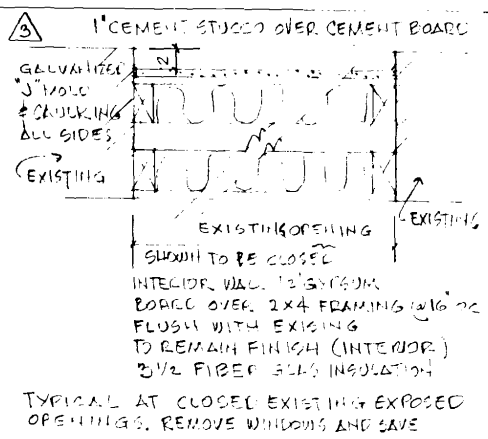 3
1" CEMENT STUCCO OVER CEMENT BOARD
2
GALVANIZED
"J" MOLD
& CAULKING
ALL SIDES
EXISTING
EXISTING
EXISTING OPENING
SHOWN TO BE CLOSED
INTERIOR WALL 1/2" GYPSUM
BOARD OVER 2x4 FRAMING @ 16" OC
FLUSH WITH EXISING
TO REMAIN FINISH (INTERIOR)
3 1/2 FIBER GLAS INSULATION
TYPICAL AT CLOSED EXISTING EXPOSED
OPENINGS. REMOVE WINDOWS AND SAVE